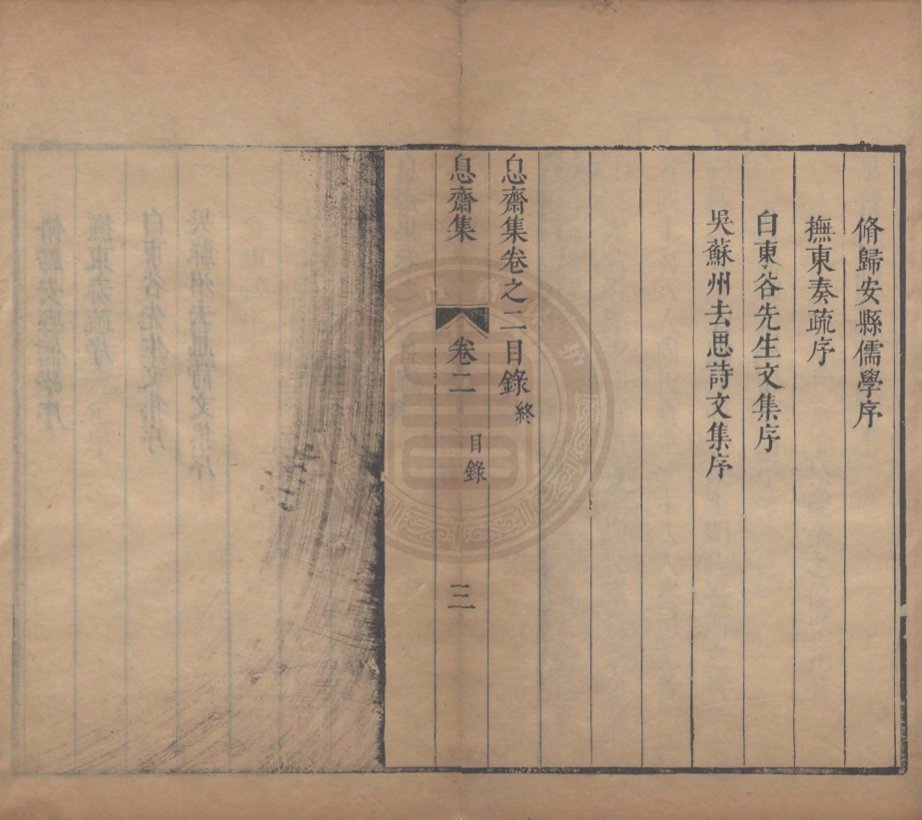 脩歸安縣儒學序
撫東奏疏序
白東谷先生文集序
吳蘇州去思詩文集序
息齋集卷之二目錄終
息齋集
卷二
目錄
三